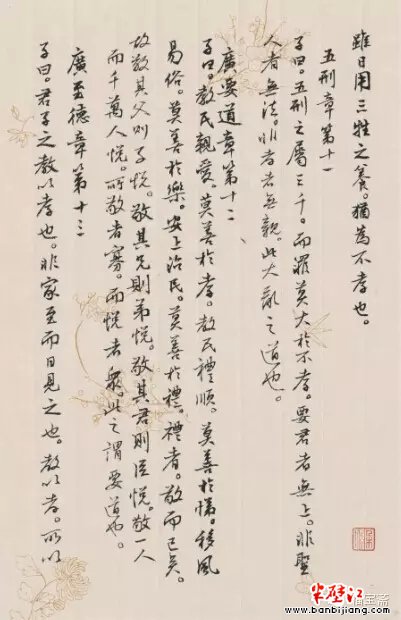 雖日用三牲之養。猶為不孝也。
五刑章第十一
子曰。五刑之屬三千。而罪莫大於不孝。要君者無上。非聖
人者無法。非孝者無親。此大亂之道也。
廣要道章第十二
子曰。教民親愛。莫善於孝。教民禮順。莫善於悌。移風
易俗。莫善於樂。安上治民。莫善於禮。禮者。敬而已矣。
故敬其父則子悅。敬其兄則弟悅。敬其君則臣悅。敬一人
而千萬人悅。所敬者寡。而悅者眾。此之謂要道也。
廣至德章第十三
子曰。君子之教以孝也。非家至而日見之也。教以孝。所以
半壁江
www.banbijiang.com